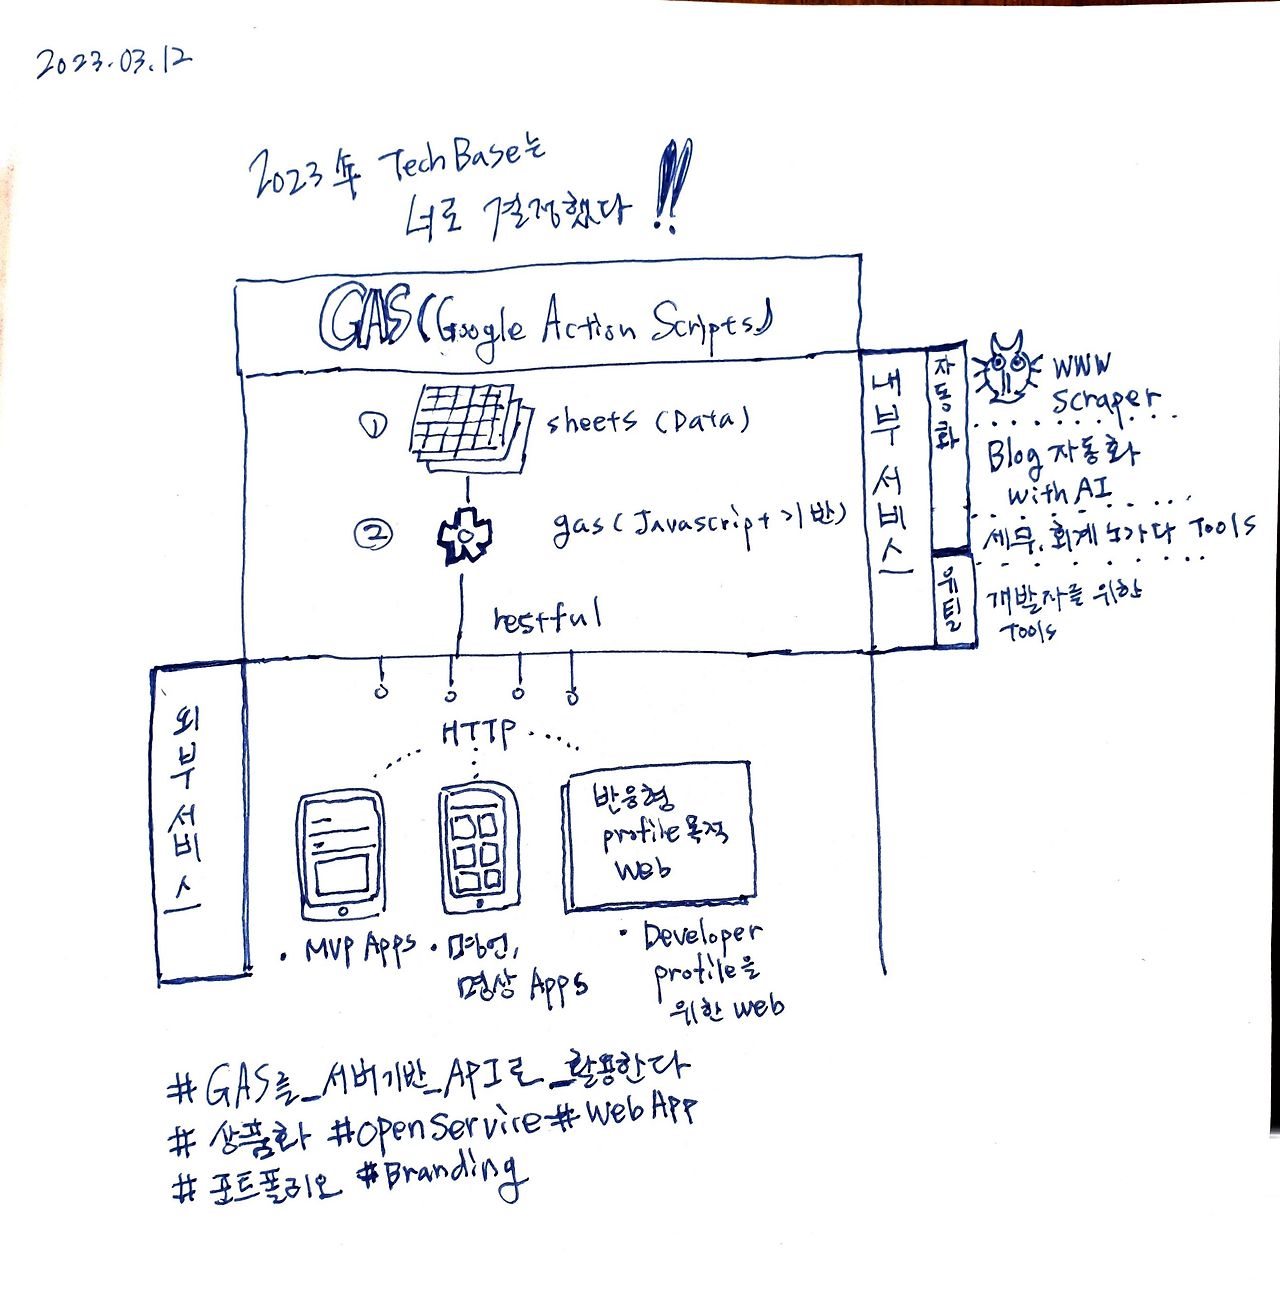 2023.03.12
2023年 TechBase는
너로 결정했다 !!
GAS (Google Action Scripts)
① sheets (Data)
② gas (Javascript 기반)
restful
HTTP
내부서비스
자동화
WWW
Scraper
Blog 자동화
with AI
세무, 회계 노가다 Tools
유틸
개발자를 위한
Tools
외부서비스
반응형
profile 목적
Web
• MVP Apps
• 명언,
명상 Apps
• Developer
profile을
위한 web
#GAS를_서버기반_API로_활용한다
#상품화 #openService #WebApp
#포트폴리오 #Branding